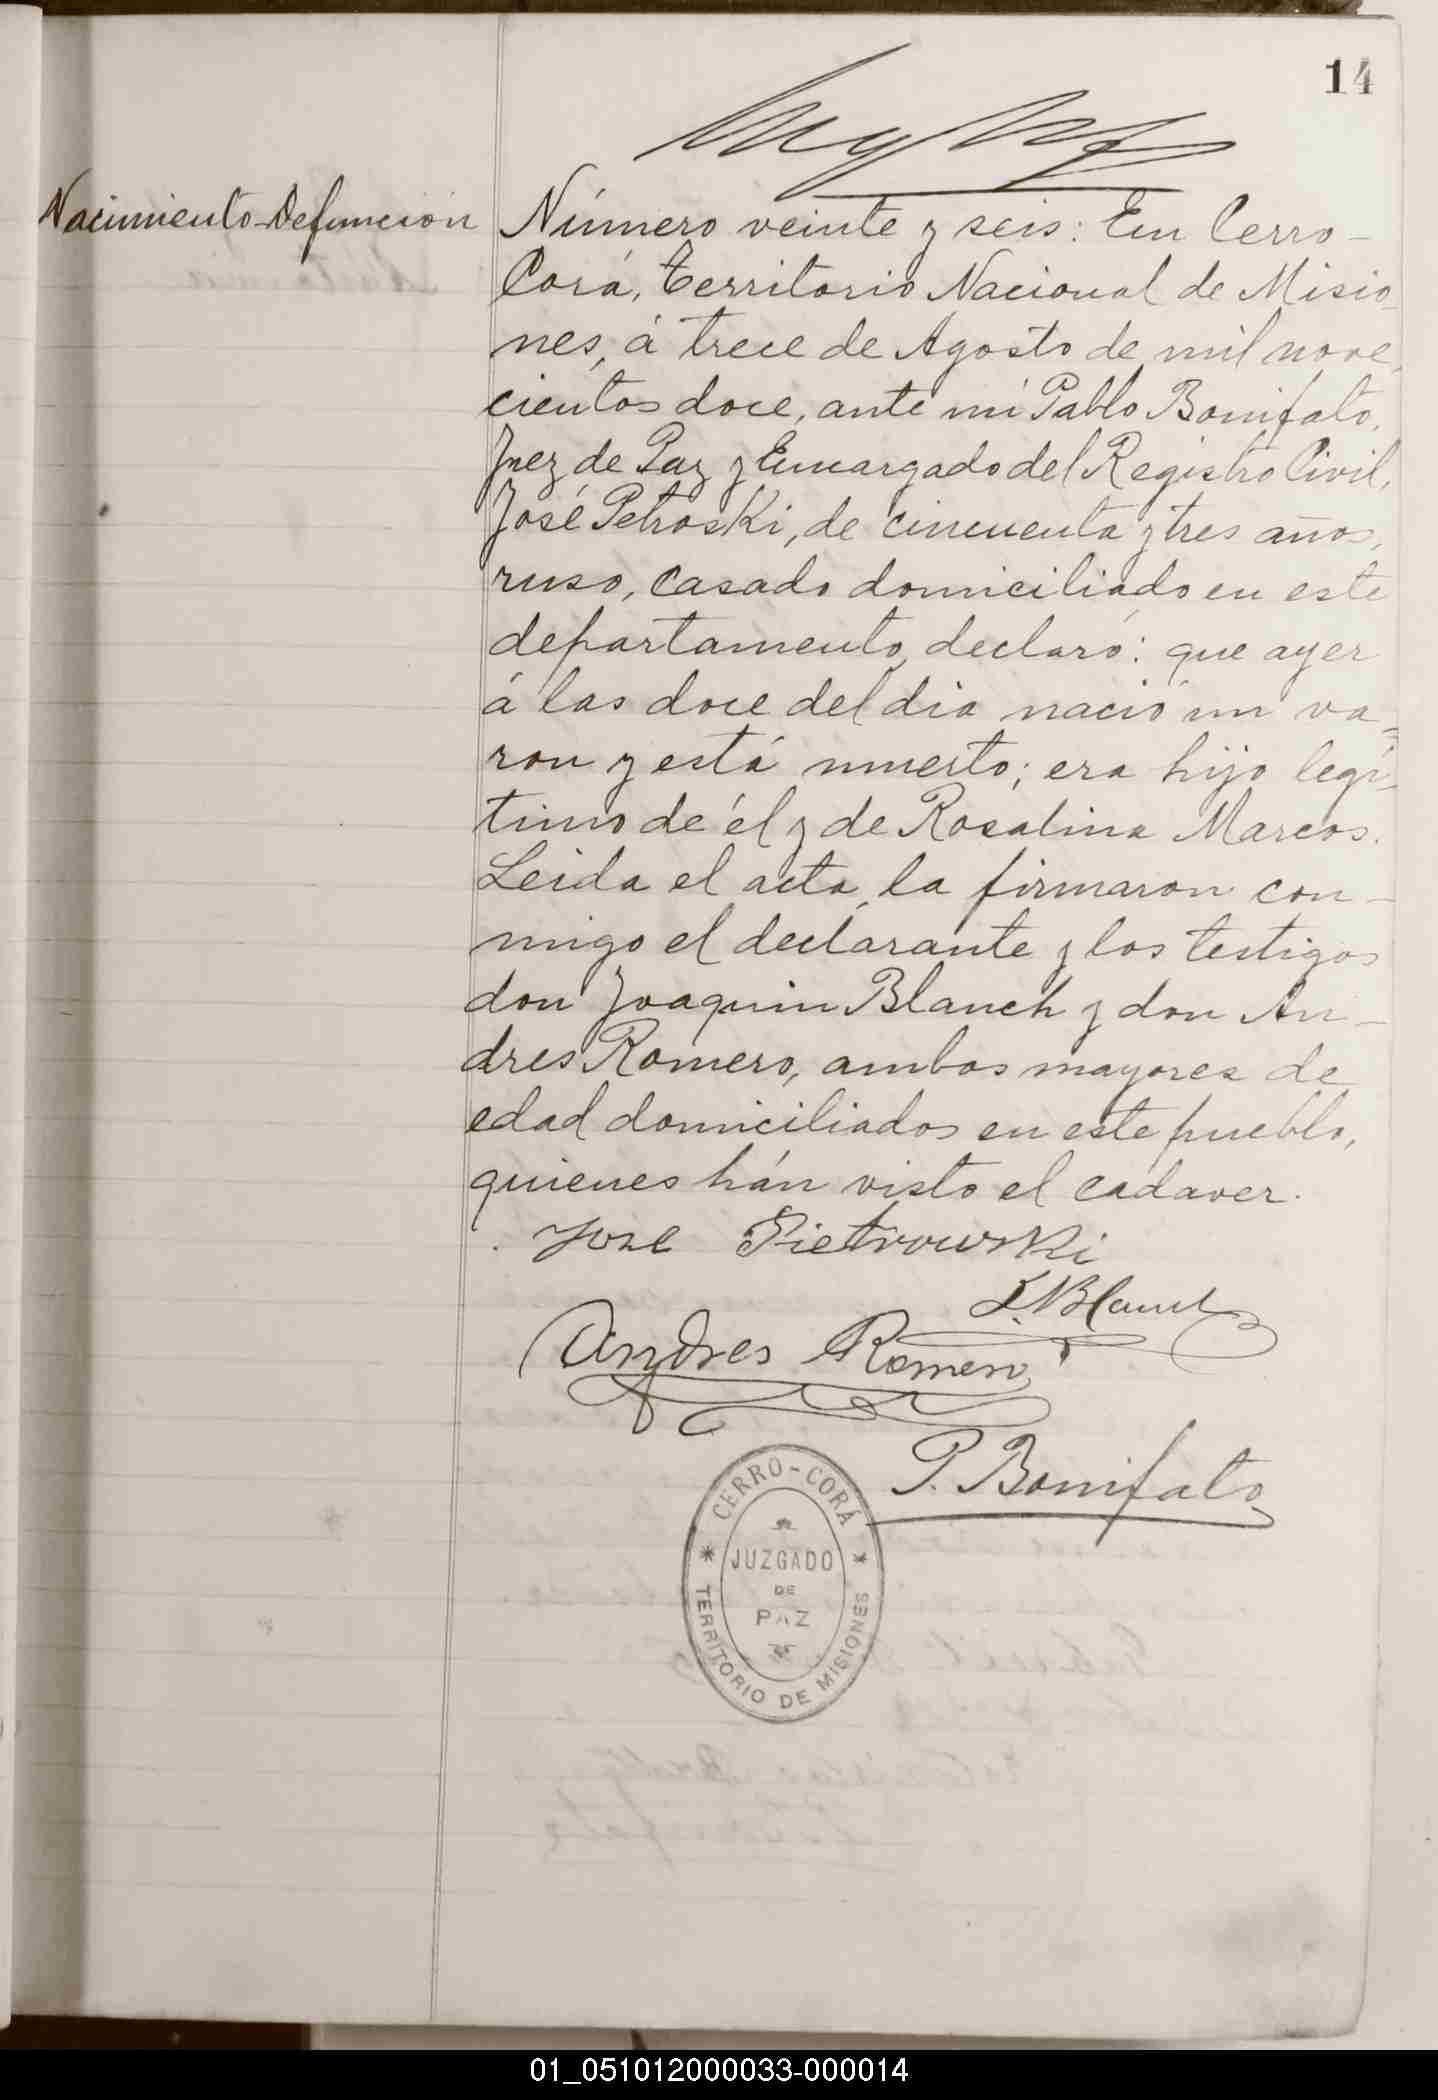 14
Nacimiento-Defunción
Número veinte y seis: En Cerro-
Corá, Territorio Nacional de Misio-
nes, á trece de Agosto de mil nove-
cientos doce, ante mí Pablo Bonifato,
Juez de Paz y Encargado del Registro Civil,
José Petroski, de cincuenta y tres años,
ruso, casado domiciliado en este
departamento, declaró: que ayer
á las doce del dia nació un va=
ron y está muerto; era hijo legí-
timo de él y de Rosalina Marcos.
Leida el acta, la firmaron con-
migo el declarante y los testigos
don Joaquin Blanch y don An-
dres Romero, ambos mayores de
edad domiciliados en este pueblo,
quienes hán visto el cadaver.
José Pietrowski
Blanch
Andres Romero
P. Bonifato
CERRO-CORÁ
JUZGADO
DE
PAZ
TERRITORIO DE MISIONES
01_051012000033-000014